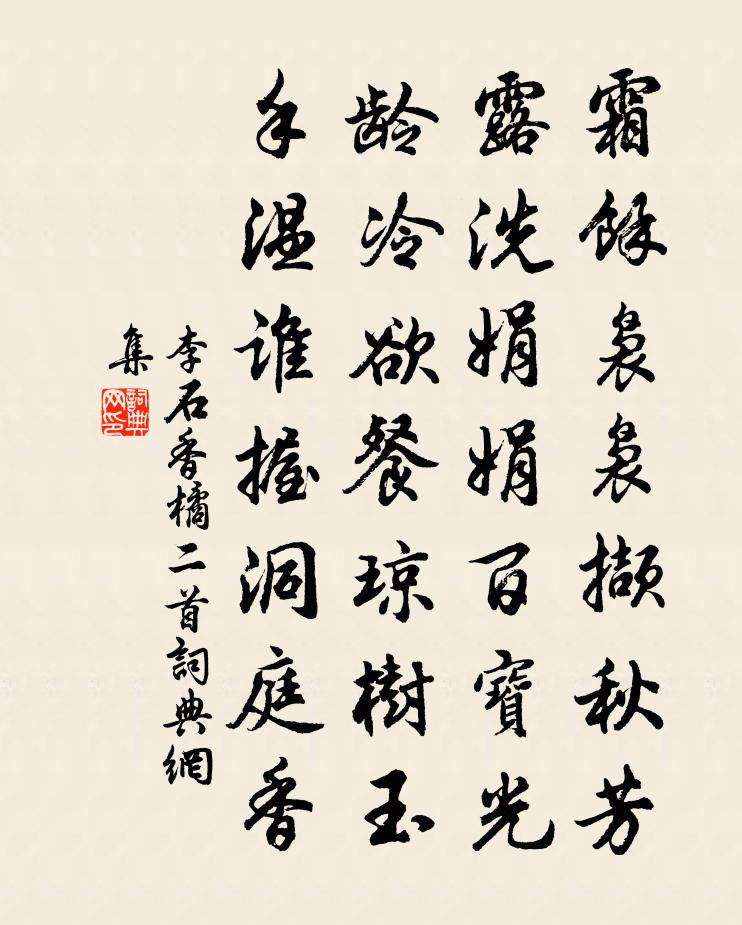 霜餘裊裊擷秋芳
露洗娟娟百寶光
齡冷欲餐琼樹玉
手温誰握洞庭香
李石香橘二首詞典網
集
詞典
网印